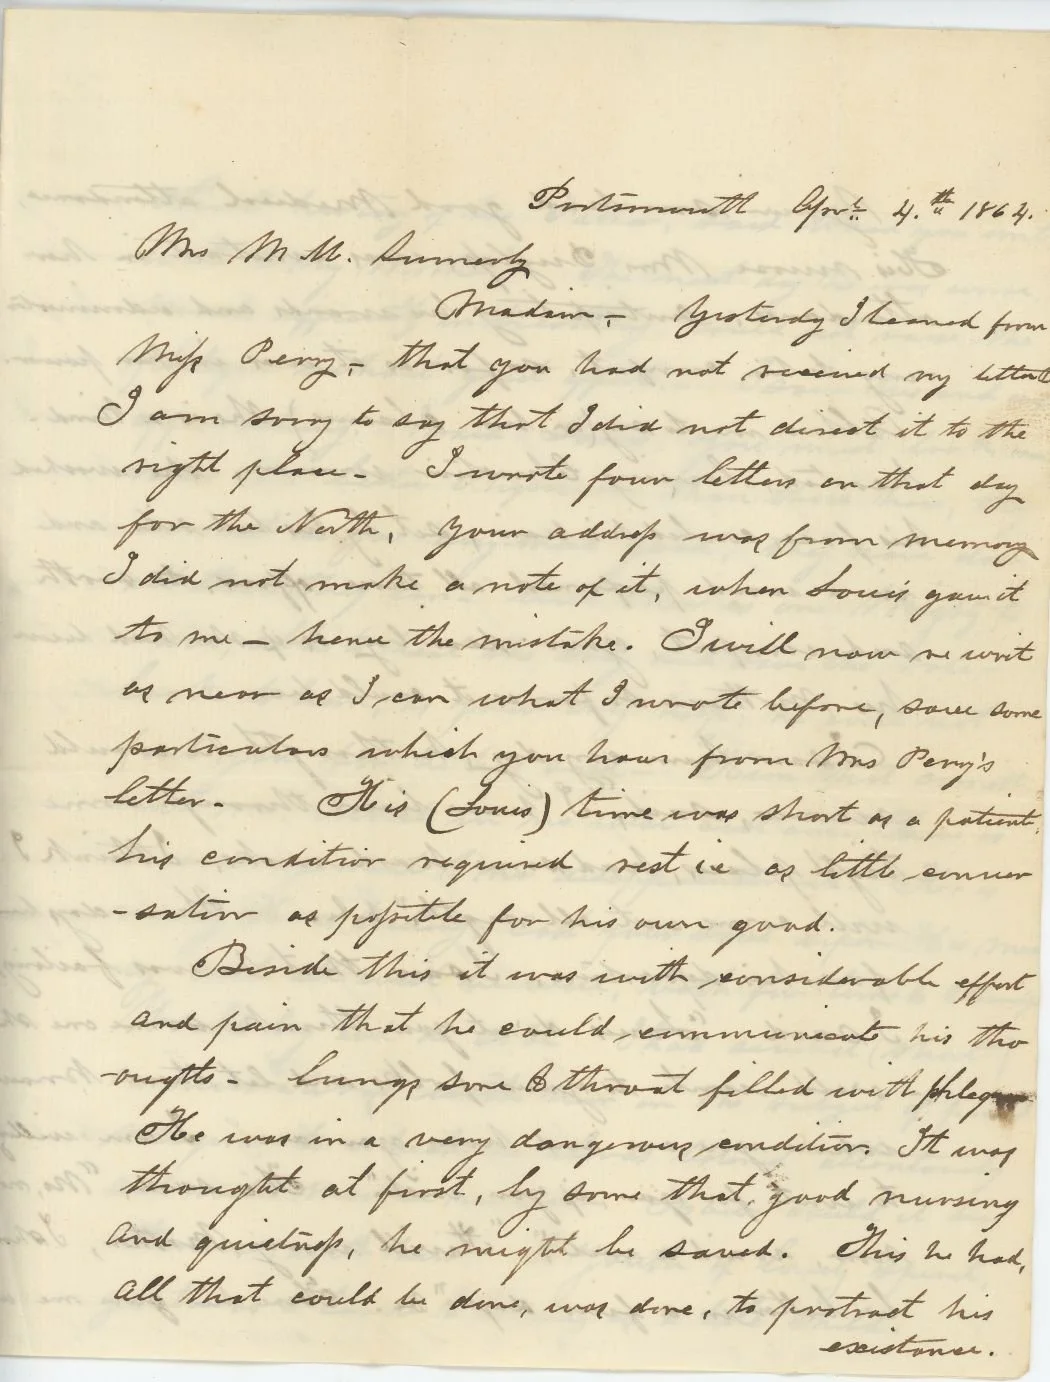 Portsmouth Aprl. 4.th 1864.
Mrs M. M. Sumerby
Madam, - Yesterdy I learned from
Miss Perry, - that you had not received my letter
I am sorry to say that I did not direct it to the
right place - I wrote four letters on that day
for the North, your address was from memory
I did not make a note of it, when Louis gave it
to me - hence the mistake. I will now re writ
as near as I can what I wrote before, save some
particulars which you have from Mrs Perry's
letter - His (Louis) time was short as a patient,
his condition required rest i e as little conver
-sation as possible for his own good.
Beside this it was with considerable effort
and pain that he could communicate his tho
-oughts - lungs sore & throat filled with phlegm
He was in a very dangerous condition. It was
thought at first, by some that good nursing
and quietness, he might be saved. This he had,
All that could be done, was done, to protract his
existance.